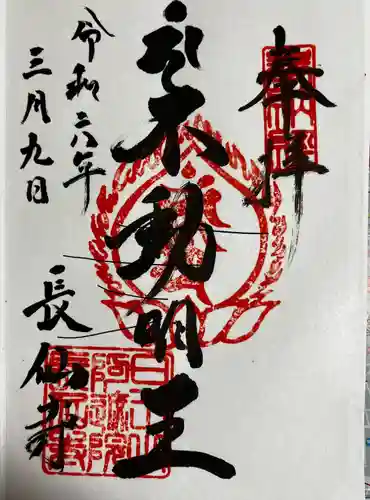 奉拝
不動明王
令和六年
三月九日
長仙寺